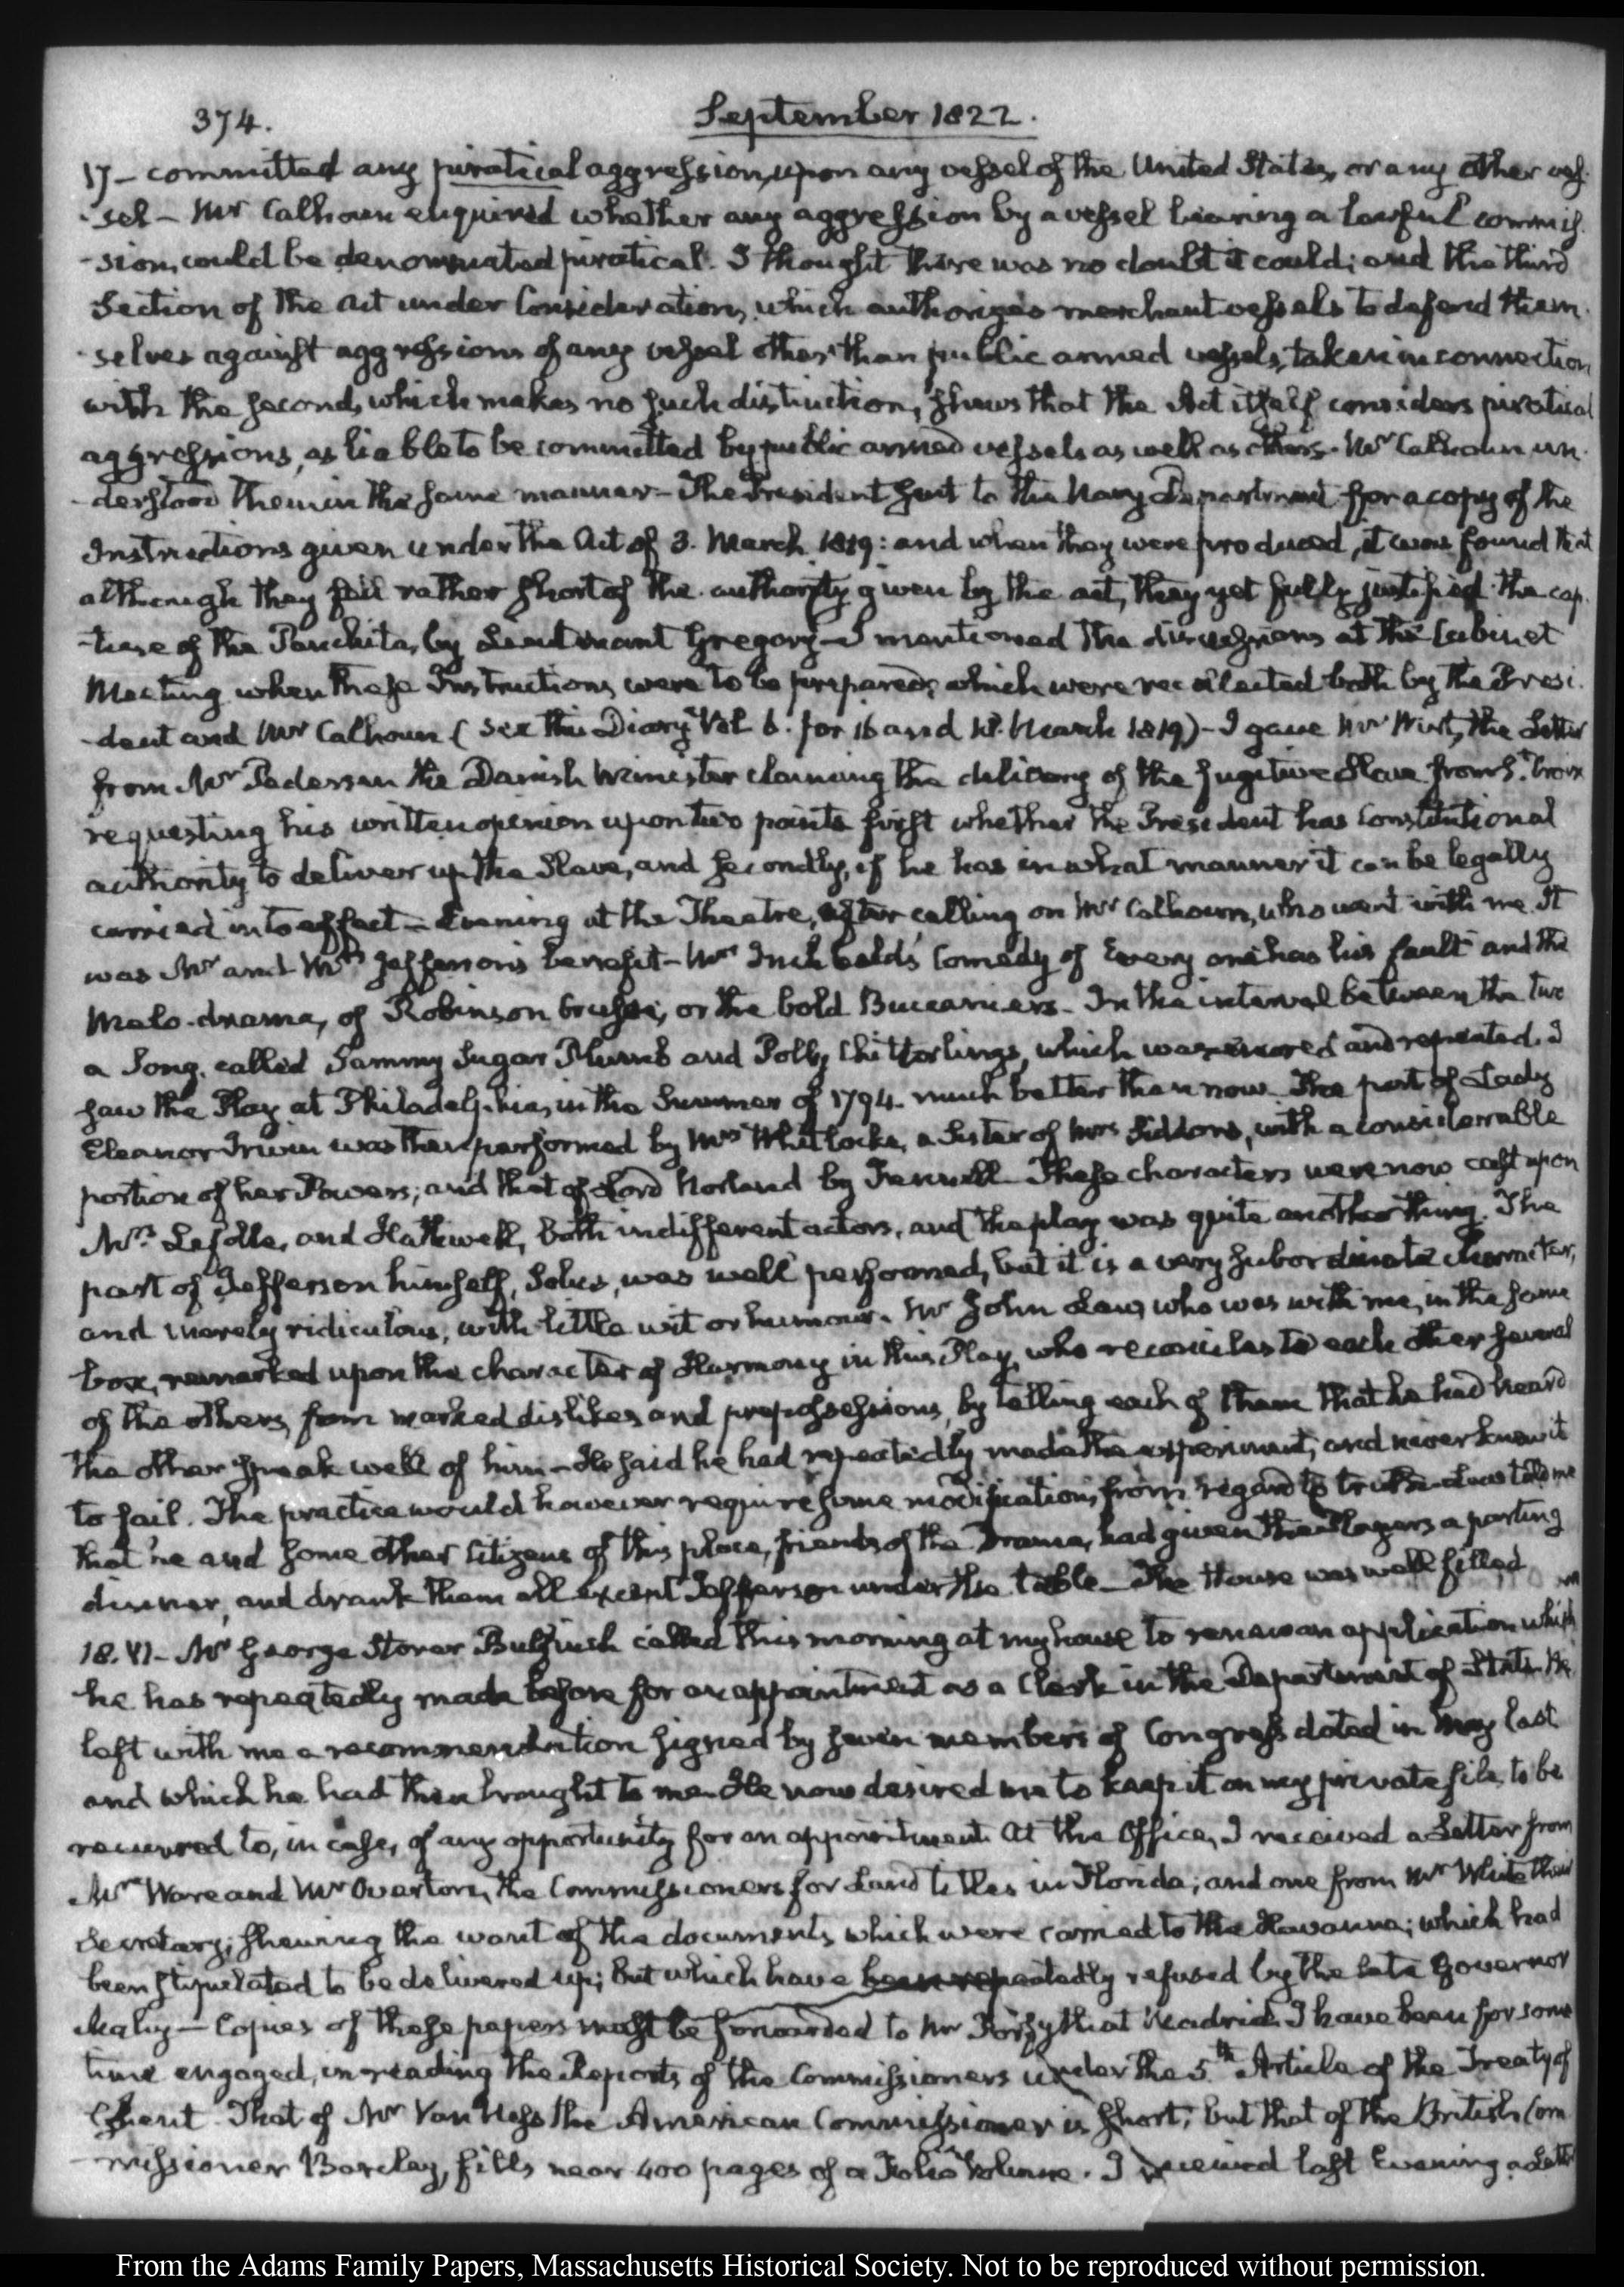 374.
September 1822.
17 - committed any piratical aggression, upon any vessel of the United States, or any other ves-
-sel - Mr Calhoun enquired whether any aggression by a vessel bearing a lawful commis-
-sion, could be denominated piratical. I thought there was no doubt it could; and the third
Section of the Act under Consideration, which authorizes merchant vessels to defend them-
-selves against aggressions of any vessel other than public armed vessels, taken in connection
with the second, which makes no such distinction, shews that the Act itself considers piratical
aggressions, as liable to be committed by public armed vessels as well as others. Mr Calhoun un-
-derstood them in the same manner - The President sent to the Navy Department for a copy of the
Instructions given under the Act of 3. March 1819: and when they were produced, it was found that
although they fell rather short of the authority given by the act, they yet fully justified the cap-
-ture of the Panchita, by Lieutenant Gregory - I mentioned the discussions at the Cabinet
Meeting when these Instructions were to be prepared, which were recollected both by the Presi-
-dent and Mr Calhoun (See this Diary Vol. 6. for 16 and 17. March 1819) - I gave Mr Wirt, the Letter
from Mr Pedersen the Danish Minister claiming the delivery of the fugitive Slave from St. Croix
requesting his written opinion upon two points first whether the President has Constitutional
authority to deliver up the Slave, and secondly, if he has in what manner it can be legally
carried into effect - Evening at the Theatre, after calling on Mr Calhoun, who went with me. It
was Mr and Mrs Jefferson's benefit - Mrs Inchbald's Comedy of Every one has his fault and the
Melo-drama, of Robinson Crusoe, or the bold Buccaniers - In the interval between the two
a Song, called Sammy Sugar Plumb and Polly Chitterlings, which was encored and repeated. I
saw the Play at Philadelphia, in the Summer of 1794. much better than now. The part of Lady
Eleanor Irwin was then performed by Mrs Whitlocke, a Sister of Mrs Siddons, with a considerable
portion of her Powers; and that of Lord Norland by Fennell. These characters were now cast upon
Mrs. Lafolle, and Hathwell, both indifferent actors, and the play was quite another thing. The
part of Jefferson himself, Solus, was well performed, but it is a very subordinate character,
and merely ridiculous, with little wit or humour. Mr John Law, who was with me, in the same
box, remarked upon the character of Harmony in this Play, who reconciles to each other several
of the others, from marked dislikes and prepossessions, by telling each of them that he had heard
the other speak well of him - He said he had repeatedly made the experiment, and never knew it
to fail. The practice would however require some modification, from regard to truth. Law told me
that he and some other Citizens of this place, friends of the Drama, had given the Players a parting
dinner, and drank them all except Jefferson under the table - The House was well filled
18. VI - Mr George Storer Bulfinch called this morning at my house to renew an application which
he has repeatedly made before for an appointment as a Clerk in the Department of State. He
left with me a recommendation signed by seven members of Congress dated in May last
and which he had then brought to me. He now desired me to keep it on my private file, to be
recurred to, in case, of any opportunity for an appointment. At the Office, I received a Letter from
Mr Ware and Mr Overton, the Commissioners for Land titles in Florida; and one from Mr White their
Secretary; shewing the want of the documents, which were carried to the Havanna; which had
been stipulated to be delivered up; but which have been repeatedly refused by the late Governor
Mahy - Copies of these papers must be forwarded to Mr Forsyth at Madrid. I have been for some
time engaged, in reading the Reports of the Commissioners under the 5th Article of the Treaty of
Ghent. That of Mr Van Ness the American Commissioner is short; but that of the British Com
-missioner Barclay, fills near 400 pages of a Folio Volume. I received last Evening a Letter
From the Adams Family Papers, Massachusetts Historical Society. Not to be reproduced without permission.